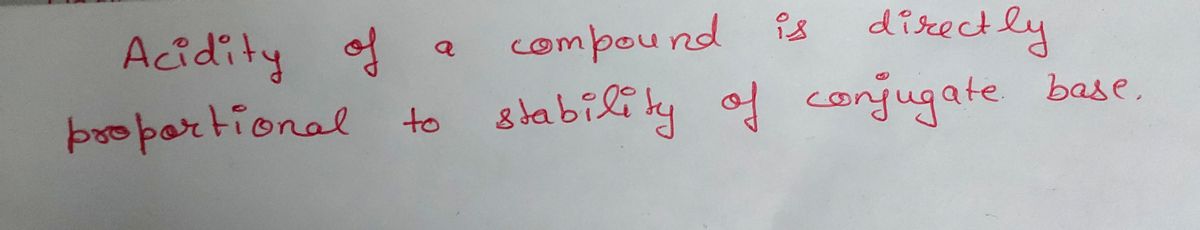 Acidity of a compound is directly
proportional to stability of conjugate base.